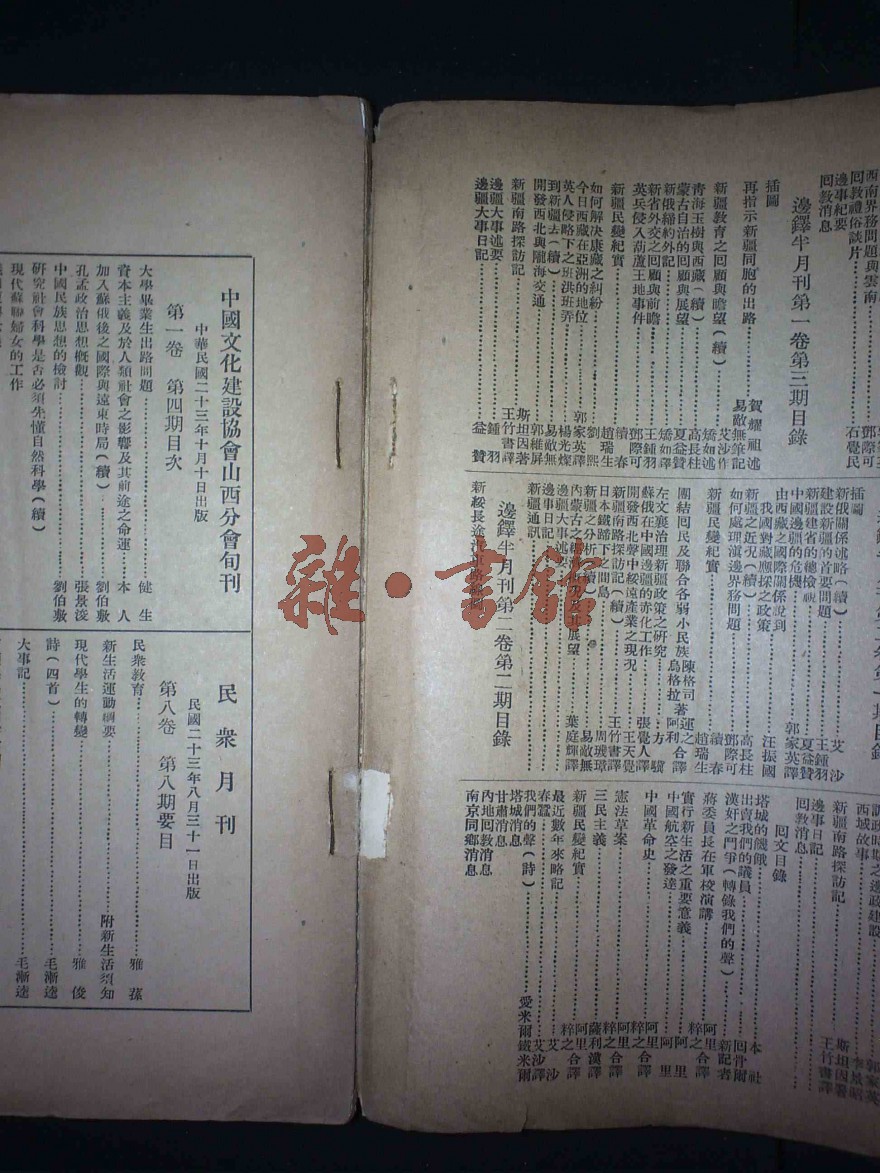 西南界務問題與雲南
回教禮俗談片
邊事紀要
回教消息
鄧際可
石覺民
邊鐸半月刊第一卷第三期目錄
插圖
再指示新疆同胞的出路 賀耀祖述
易敵無筆記
新疆教育之回顧與瞻望(續) 艾沙作
矯如述
青海玉樹與西藏(續) 高長柱
蒙古自治的回顧與展望 夏益贊
新俄締約外記 矯如譯
新省外交之回顧與前瞻 王鍾羽
英兵侵入葫蘆王地事件 鄧際可
新疆民變紀實 續春
趙瑞生
如何解決康藏之糾紛 劉熙
今日西藏在亞洲的地位 郭家英譯
英人侵略下之班洪班弄 楊光燦
到新疆去(續) 易敵無
開發西北與隴海交通 郭維屏
新疆南路探訪記 斯坦因著
王竹書譯
邊疆大事述要 鍾羽
邊疆大事日記 益贊
插圖
新俄關係述略(續) 艾沙
建設新疆的首要問題 王鍾羽
新疆建省的總檢視 夏益贊
中國邊疆的危機 郭家英譯
由西藏之國際關係說到
我國對藏應採之政策 汪振國
新疆之近況(續) 高長柱
如何處理滇邊界務問題 鄧際可
新疆民變紀實 續春
趙瑞生
團結回民及聯合各弱小民族 陳格司運之合譯
烏格拉著阿利
左文襄治理新疆政策之研究 方驥
蘇俄在中國邊疆的赤化工作 張覺人譯
開發西北聲中綏遠產業之現況 王天覺
新疆南路探訪記(續) 王竹書譯
日本鐵蹄下之間島 周璣璋
新疆之分析(續) 易敵無
葉庭輝譯
邊疆大事述要
邊事日記
新疆通訊
邊鐸半月刊第二卷第二期目錄
西域故事 李景昭
新疆南路探訪記 斯坦因著
王竹書譯
邊事日記
回教消息
回文目錄
塔城的饑餓 本社
出賣我們的議員 回骨爾
漢奸之鬥爭(轉錄我們的聲) 新記者
蔣委員長在軍校演講 阿里合譯
粹之
實行新生活之重要意義 阿里
中國航空之發達 阿里
中國革命史 阿里合譯
粹之
憲法草案 阿里合譯
粹之
三民主義 薩利漢譯
新疆民變紀實 阿里合譯
粹之
最近數年來略記 艾沙
春蠶 艾沙譯
我們的聲(詩) 愛米爾鐵米爾
塔城消息
甘肅消息
內地回教消息
南京同鄉消息
中國文化建設協會山西分會旬刊
中華民國二十三年十月十日出版
第一卷 第四期目次
大學畢業生出路問題 健生
資本主義及於人類社會之影響及其前途之命運 本人
加入蘇俄後之國際與遠東時局(續) 劉伯敷
孔孟政治思想概觀 張景浚
中國民族思想的檢討 劉伯敷
研究社會科學是否必須先懂自然科學(續)
現代蘇聯婦女的工作
民衆月刊
民國二十三年八月三十一日出版
第八卷 第八期要目
民衆教育 雅蓀
新生活運動綱要 附新生活須知
現代學生的轉變 雅俊
詩(四首) 毛漸逵
大事記 毛漸逵
雜·書館